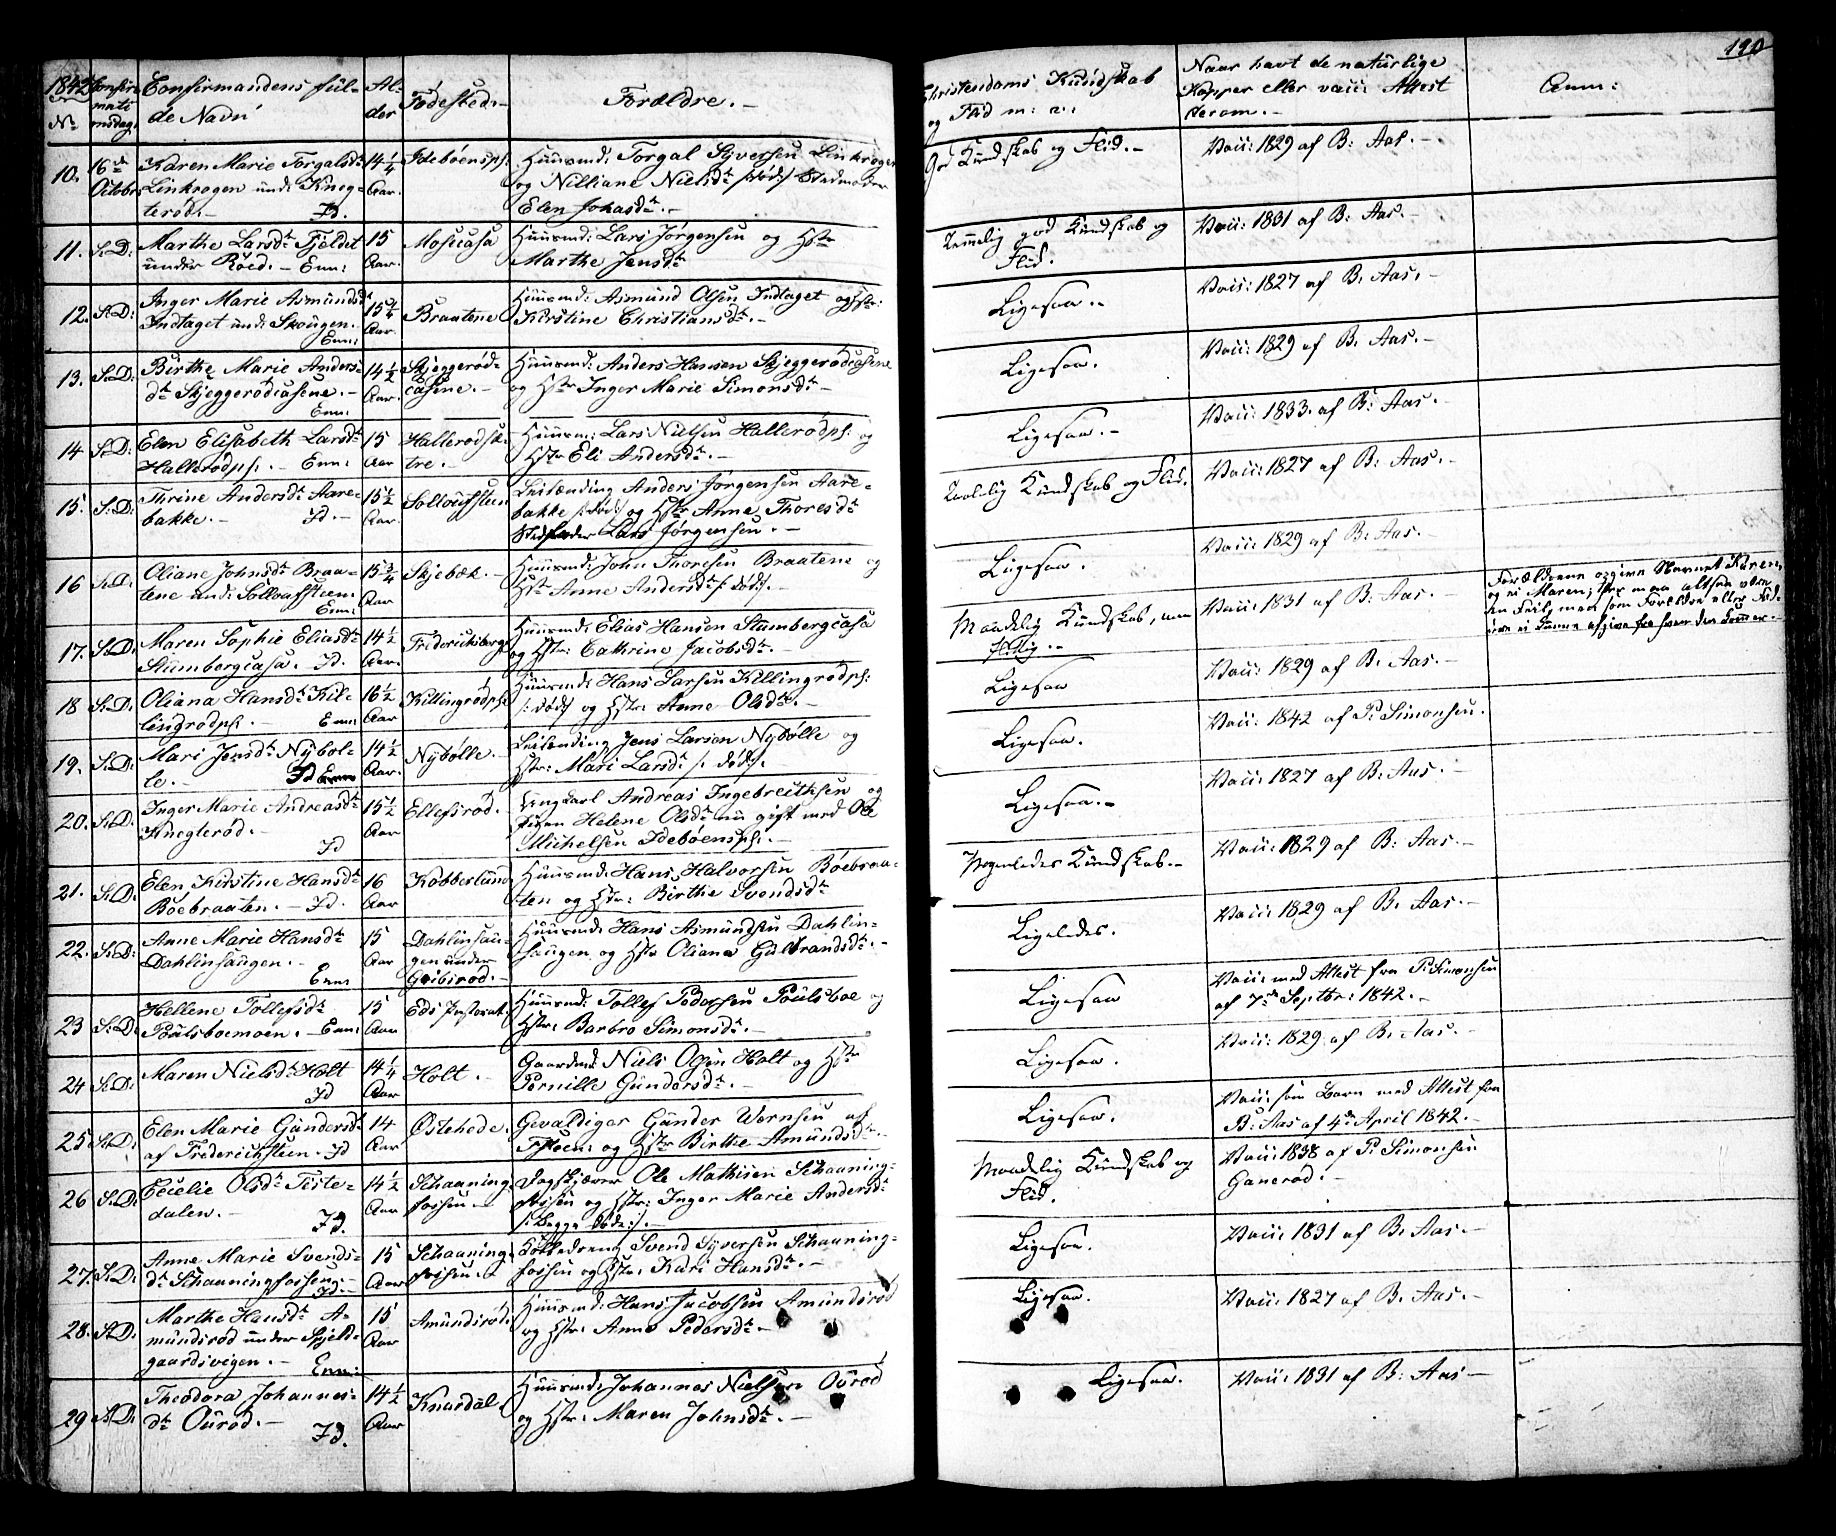 190
1842
No
Confir-
mati-
onsdag.
Confirmandens ful-
de Navn
Al-
der
Fødested.-
Forældre.-
Christendoms Kundskab
og Flid m: v:
Naar havt de naturlige
Kopper eller vacc: Attest
derom.-
Anm:
10. 16de
Octobr
Karen Marie Torgalsdr
Linkrogen und: Kneg-
terød.- Id.
14 1/4
Aar.
Idebøenspl:
Huusmd: Torgal Syversen Linkrogen
og Nilliane Nielsdr /:død:/ Stedmoder
Elen Johasdr.-
God Kundskab og Flid.-
Vacc: 1829 af B: Aas.-
11. S.D:
Marthe Larsdr Fjeldet
under Røed.- Enn:
15
Aar.
Moseasa
Huusmd: Lars Jørgensen og Hstr
Marthe Jensdr
Temmelig god Kundskab og
Flid.
Vacc: 1831 af B: Aas.-
12. S.D:
Inger Marie Asmundsdr
Indtaget und: Skougen.
Enn:
15 1/4
Aar.
Braatene
Huusmd: Asmund Olsen Indtaget og Hstr:
Kirstine Christiansdr.-
Ligesaa.-
Vacc: 1827 af B. Aas.-
13. S.D:
Birthe Marie Anders-
dr Skjeggerødcasene.-
Enn:
14 1/2
Aar.
Skjeggerød-
casene.-
Huusmd: Anders Hansen Skjeggerødcasene
og Hstr Inger Marie Simonsdr-
Ligesaa.
Vacc: 1829 af B. Aas.-
14 S.D:
Elen Elisabeth Larsdr
Hallerødpl:.- Enn:
15
Aar
Hallerødsle-
tre.-
Huusm: Lars Nielsen Hallerødpl: og
Hstr Eli Andersdr.-
Ligesaa.-
Vacc: 1833. af B: Aas.-
15. S.D:
Thrine Andersdr Aare-
bakke.- Id.-
15 1/2
Aar.
Solloufsteen
Leilænding Anders Jørgensen Aare-
bakke /:død:/ og Hstr Anne Thoresdr
Stedfader Lars Jørgensen.-
Taalelig Kundskab og Flid.
Vacc: 1827 af B: Aas.-
16 S.D:
Oliane Johnsdr Braa-
tene und: Solloufsteen
Enn:
15 3/4
Aar
Skjebæk.-
Huusmd: John Thoresen Braatene og
Hstr Anne Andersdr /:død:/.
Ligesaa.
Vacc: 1829 af B. Aas.-
17. S.D:
Maren Sophie Eliasdr
Stumbergcasa. Id.
14 1/2
Aar.
Fredericksberg
Huusmd: Elias Hansen Stumbergcasa
og Hstr: Cathrine Jacobsdr.-
Maadelig Kundskab, men
flittig.-
Vacc: 1831 af B: Aas.-
Forældrene opgive Navnet Karen,
og ei Maren; her maa altsaa være
en Feil, men som Forældre eller Fad-
dere ei kunne opgive fra hvem den kommer.-
18 S.D:
Oliana Hansdr Kil-
lingrødpl:.- Enn:
16 1/2
Aar
Killingrødpl:
Huusmd: Hans Larsen Killingrødpl:
/:død:/ og Hstr: Anne Olsdr.-
Ligesaa
Vacc: 1829 af B. Aas.-
19. S.D:
Mari Jensdr Nybøl-
le.- Id
14 1/2
Aar.
Nybølle.
Leilænding Jens Larsen Nybølle og
Hstr: Mari Larsdr /:død:/.
Ligesaa.
Vacc: 1842 af P. Simonsen.
20. S.D:
Inger Marie Andreasdr
Knegterød.-
Id
15 1/2
Aar
Ellefsrød.
Ungkarl Andreas Ingebreithsen og
Pigen Helene Olsdr nu gift med Ole
Michelsen Idebøenspl:.-
Ligesaa.-
Vacc: 1827 af B. Aas.-
21. S.D:
Elen Kirstine Hansdr
Bøebraaten.- Id.
16
Aar
Kobberlund
Huusmd: Hans Halvorsen Bøebraa-
ten og Hstr: Birthe Svendsdr
Nogenledes Kundskab.-
Vacc: 1829 af B: Aas.-
22. S.D:
Anne Marie Hansdr
Dahlinhaugen.-
Enn:
15
Aar
Dahlinhau-
gen under
Gribsrød.-
Huusmd: Hans Asmundsen Dahlin-
haugen og Hstr Oliana Guldbrandsdr.-
Ligeledes.
Vacc: 1829 af B. Aas.-
23 S.D:
Hellene Tollefsdr
Poulsboemoen.- Enn:
15
Aar
Eds Pastorat.
Huusmd: Tollef Pedersen Poulsboe og
Hstr: Barbro Simonsdr.-
Ligesaa
Vacc: med Attest fra P. Simonsen
af 7de Septbr: 1842.-
24 S.D:
Maren Nielsdr Holt
Id
14 1/4
Aar
Holt.-
Gaardmd: Niels Olsen Holt og Hstr
Pernille Gundersdr.-
Ligesaa.
Vacc: 1829 af B. Aas.-
25 S.D:
Elen Marie Gundersdr
af Frederichsteen. Id
14
Aar
Østehede.
Gevaldiger Gunder Wernsen af
Fsteen: og Hstr Birthe Amundsdr.
Ligesaa.
Vacc: som Barn med Attest fra
B: Aas af 4de April 1842.-
26 S.D:
Cecelie Olsdr Tiste-
dalen.-
Id.
14 1/2
Aar
Schaaning-
fossen.-
Sagskjærer Ole Mathisen Schaaning-
fossen og Hstr: Inger Marie Andersdr
/: Begge døde:/.
Maadelig Kundskab og
Flid.
Vacc: 1838 af P. Simonsen
Ganerød.-
27. S.D:
Anne Marie Svends-
dr Schaaningfossen.-
Id.-
15
Aar
Schaaning-
fossen.
Svend Syversen Schaaning-
fossen og Hstr: Kari Hansdr.-
Ligesaa.
Vacc: 1831 af B. Aas.-
28. S.D:
Marthe Hansdr A-
mundsrød under Skjeld-
gaardsveigen.- Enn:
15
Aar
Amundsrød.
Huusmd: Hans Jacobsen Amundsrød
og Hstr: Anne Pedersdr.-
Ligesaa.
Vacc: 1827 af B. Aas.-
29 S.D:
Theodora Johannes-
dr Ourød.-
Id.
14 1/2
Aar
Knardal
Huusmd: Johannes Nielsen Ourød
og Hstr: Maren Johnsdr.-
Ligesaa.
Vacc: 1831 af B: Aas-